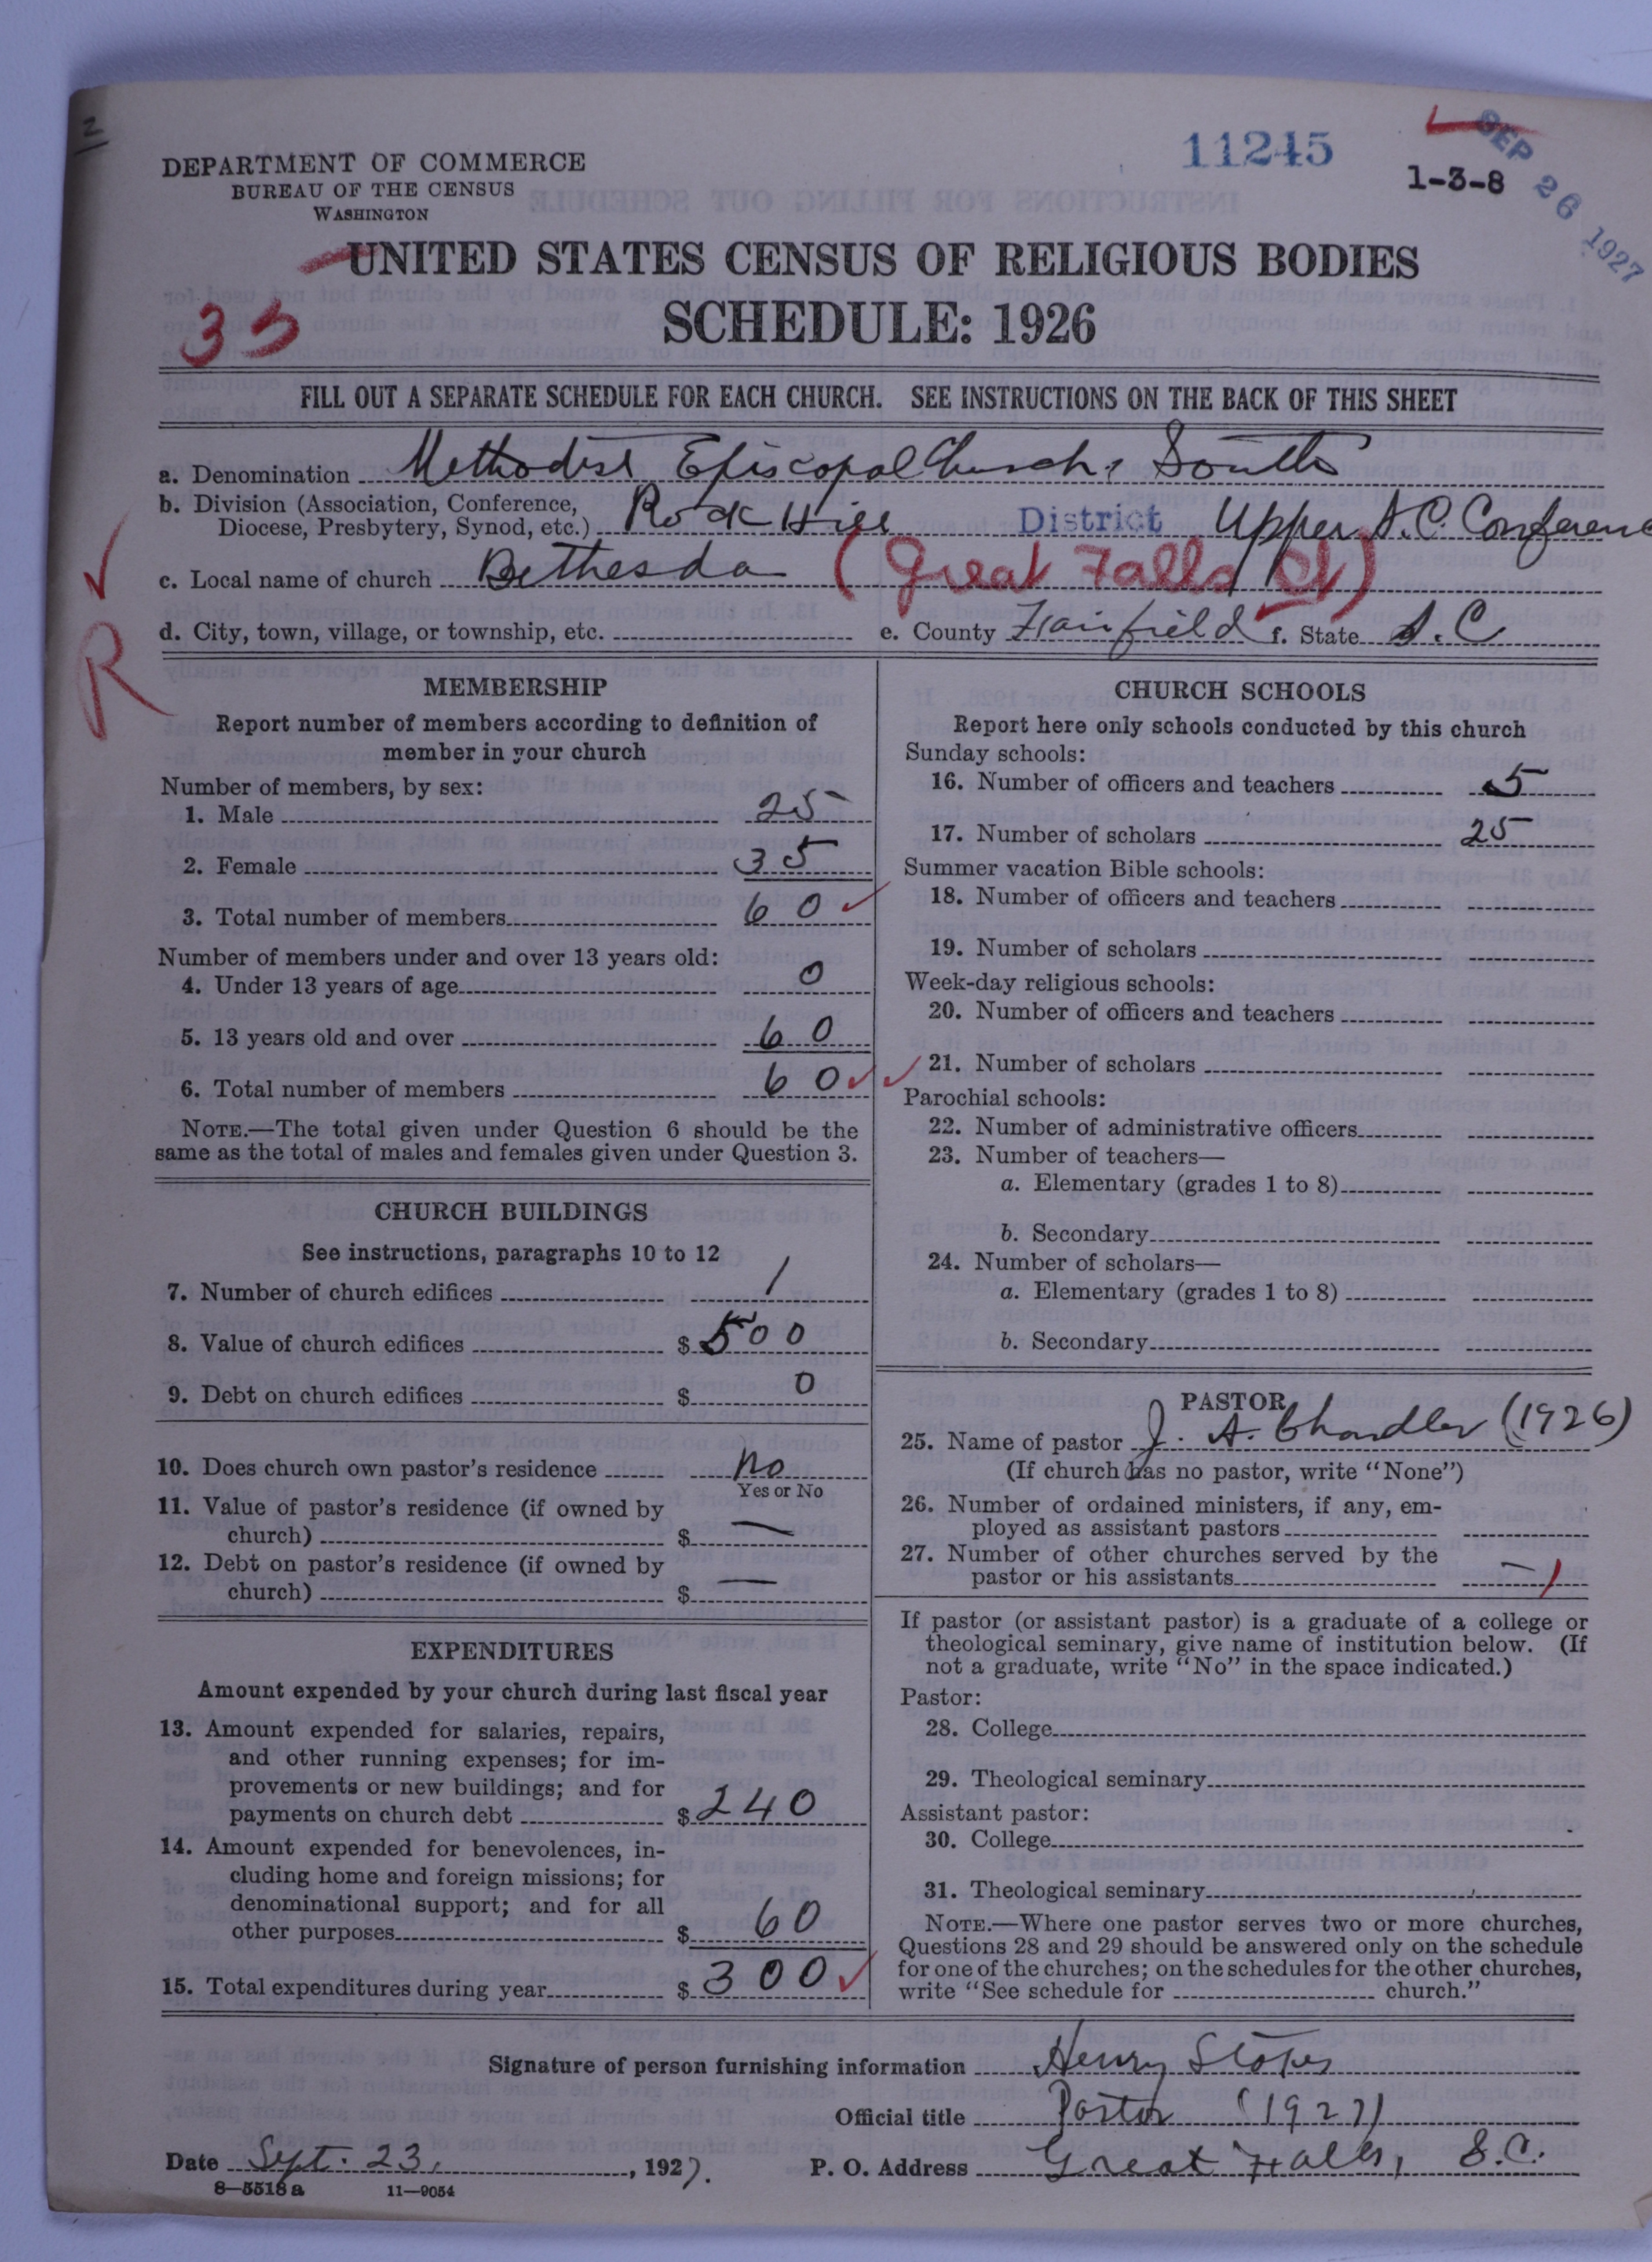 2
11245
SEP 26 1927
1-3-8
DEPARTMENT OF COMMERCE
BUREAU OF THE CENSUS
WASHINGTON
UNITED STATES CENSUS OF RELIGIOUS BODIES
SCHEDULE: 1926
33
FILL OUT A SEPARATE SCHEDULE FOR EACH CHURCH. SEE INSTRUCTIONS ON THE BACK OF THIS SHEET
a. Denomination Methodist Episcopal Church, South
b. Division (Association, Conference,
Diocese, Presbytery, Synod, etc.) Rock Hill District Upper S.C. Conference
c. Local name of church Bethesda (Great Falls Ct)
d. City, town, village, or township, etc. e. County Fairfield f. State S.C
R
MEMBERSHIP
Report number of members according to definition of
member in your church
Number of members, by sex:
1. Male 25
2. Female 35
3. Total number of members 60
Number of members under and over 13 years old:
4. Under 13 years of age 0
5. 13 years old and over 60
6. Total number of members 60
NOTE.—The total given under Question 6 should be the
same as the total of males and females given under Question 3.
CHURCH BUILDINGS
See instructions, paragraphs 10 to 12
7. Number of church edifices 1
8. Value of church edifices $500
9. Debt on church edifices $ 0
10. Does church own pastor's residence No
Yes or No
11. Value of pastor's residence (if owned by
church) $ —
12. Debt on pastor's residence (if owned by
church) $ —
EXPENDITURES
Amount expended by your church during last fiscal year
13. Amount expended for salaries, repairs,
and other running expenses; for im-
provements or new buildings; and for
payments on church debt $240
14. Amount expended for benevolences, in-
cluding home and foreign missions; for
denominational support; and for all
other purposes $ 60
15. Total expenditures during year $300
CHURCH SCHOOLS
Report here only schools conducted by this church
Sunday schools:
16. Number of officers and teachers 5
17. Number of scholars 25
Summer vacation Bible schools:
18. Number of officers and teachers
19. Number of scholars
Week-day religious schools:
20. Number of officers and teachers
21. Number of scholars
Parochial schools:
22. Number of administrative officers
23. Number of teachers—
a. Elementary (grades 1 to 8)
b. Secondary
24. Number of scholars—
a. Elementary (grades 1 to 8)
b. Secondary
PASTOR
25. Name of pastor J. A. Chandler (1926)
(If church has no pastor, write "None")
26. Number of ordained ministers, if any, em-
ployed as assistant pastors
27. Number of other churches served by the
pastor or his assistants — 1
If pastor (or assistant pastor) is a graduate of a college or
theological seminary, give name of institution below. (If
not a graduate, write "No" in the space indicated.)
Pastor:
28. College
29. Theological seminary
Assistant pastor:
30. College
31. Theological seminary
NOTE.—Where one pastor serves two or more churches,
Questions 28 and 29 should be answered only on the schedule
for one of the churches; on the schedules for the other churches,
write "See schedule for church."
Signature of person furnishing information Henry Stokes
Official title Pastor (1927)
Date Sept. 23, , 1927. P. O. Address Great Falls, S.C.
8—5518 a 11—9054